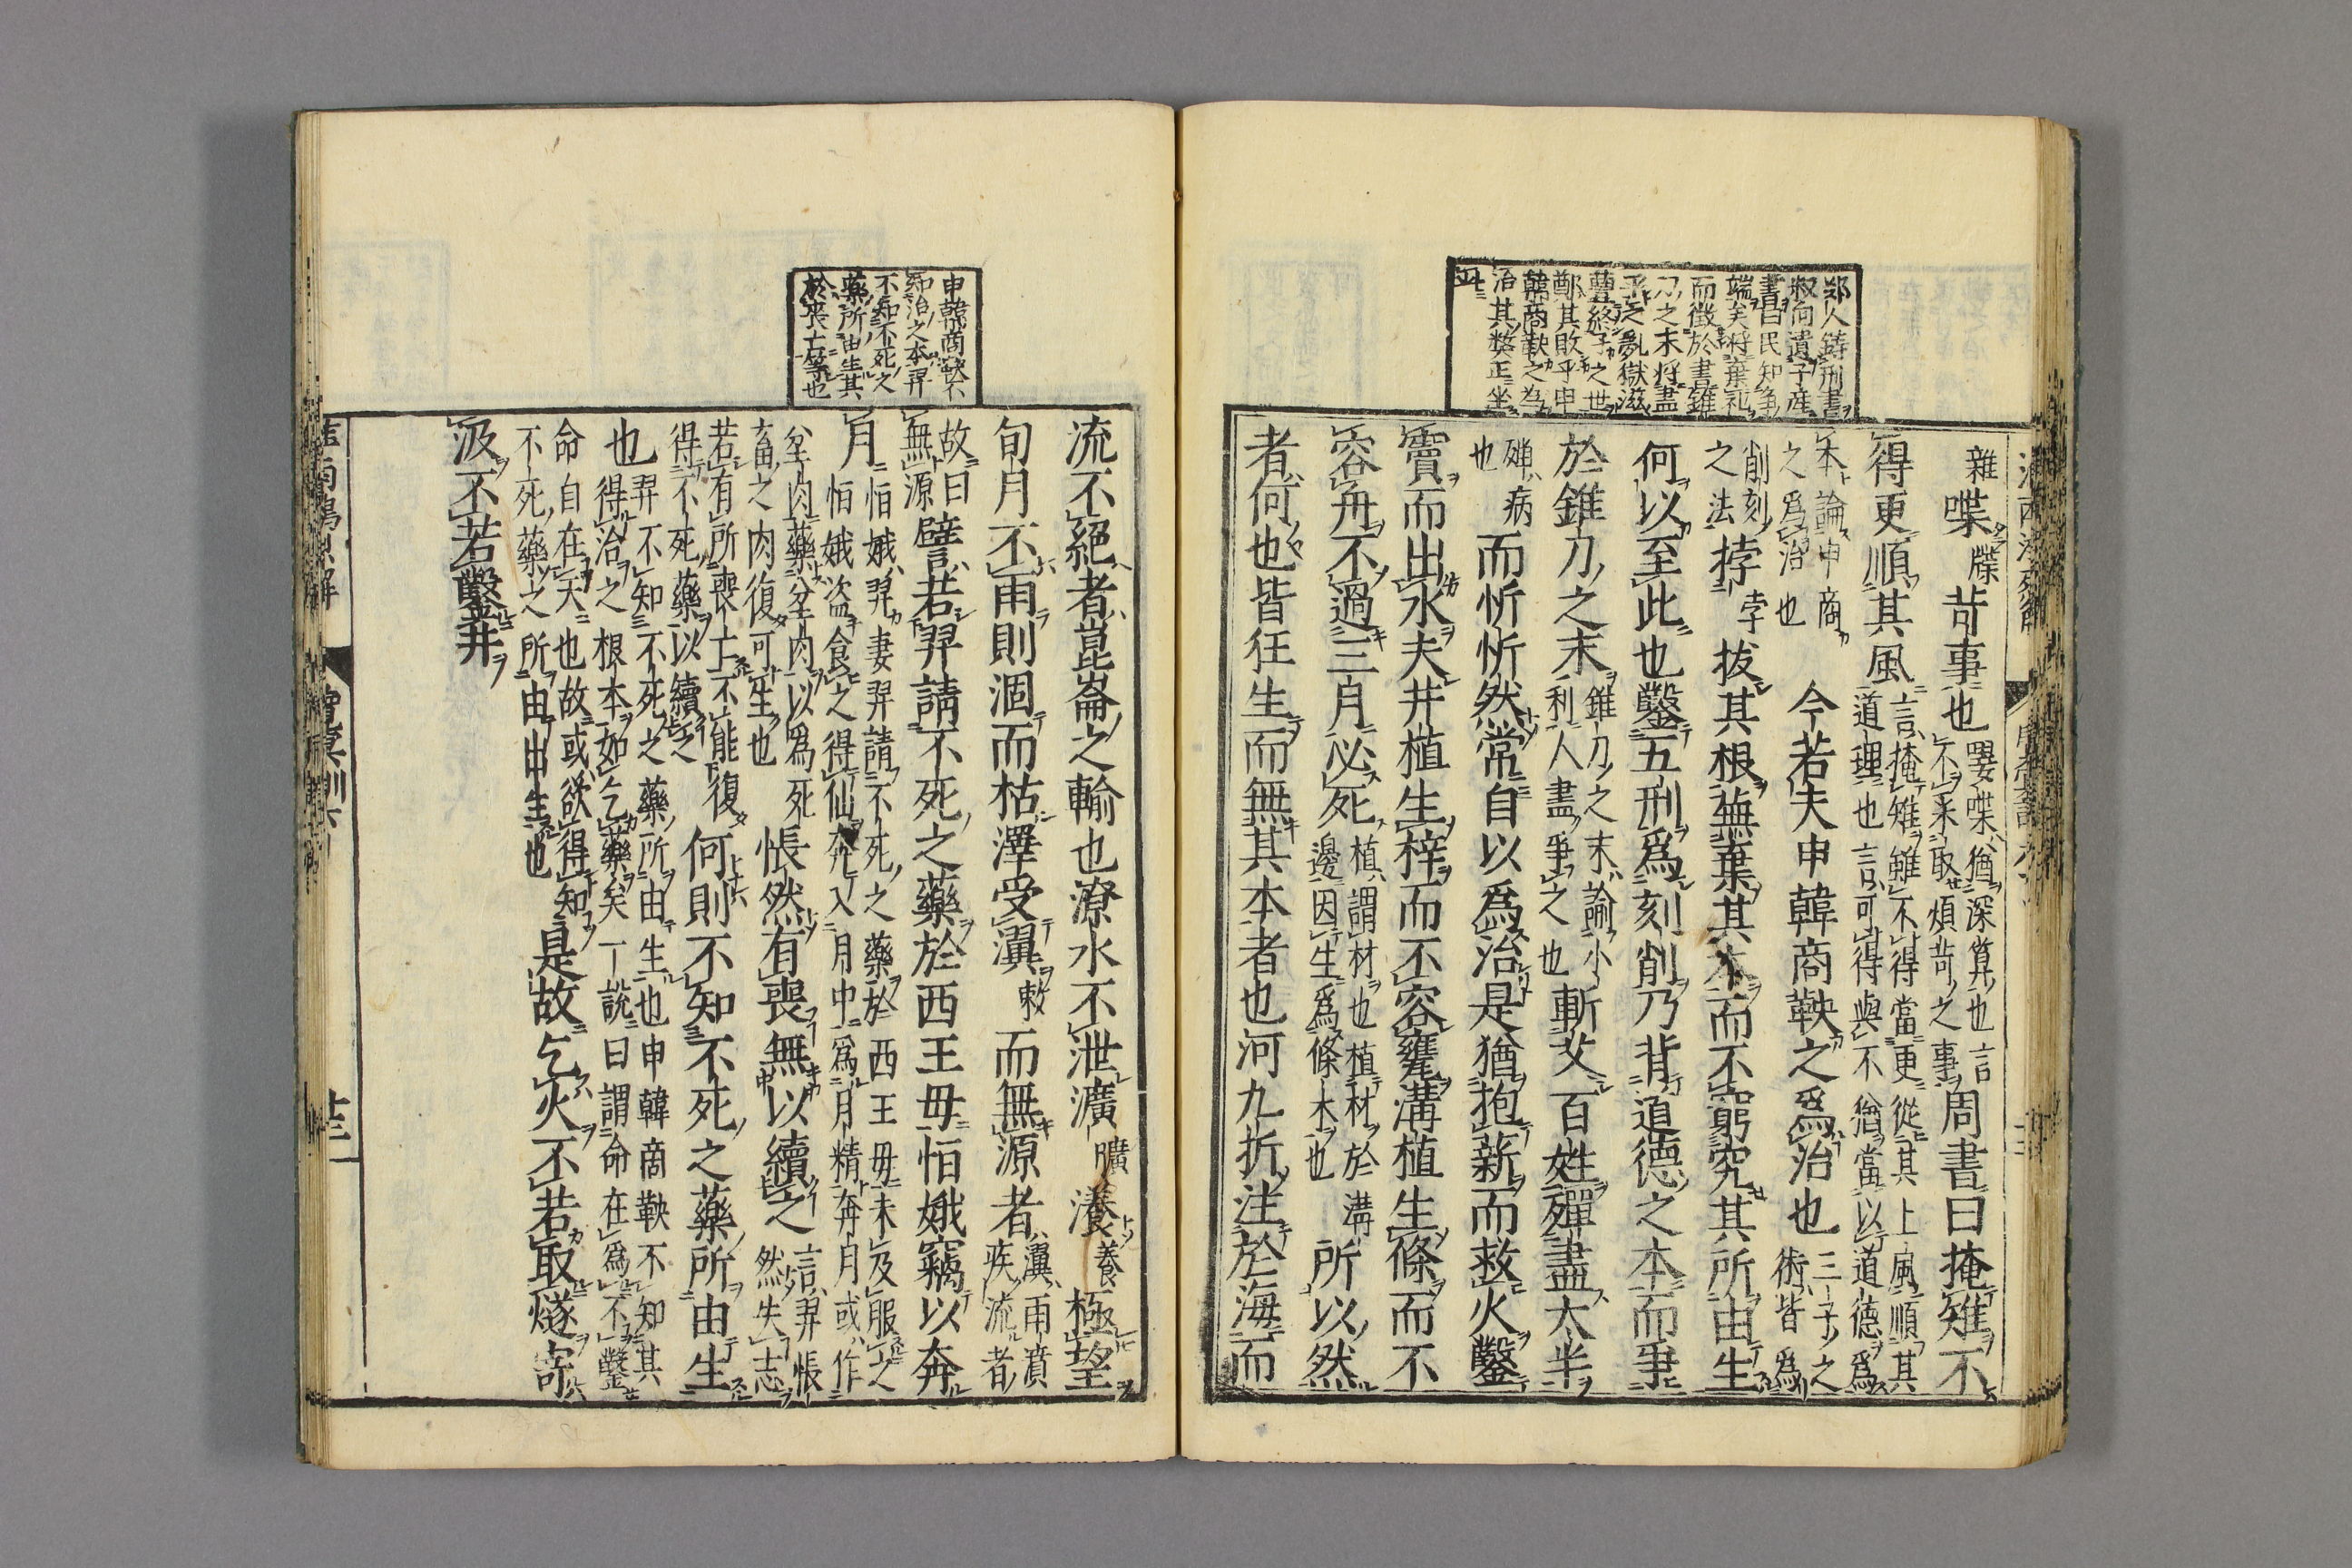 鄭人鋳刑書
叔向遺子産
書曰民知争
端矣将棄礼
而徴於書錐
刀之末将盡
乎之亂獄滋
豊終子之世
鄭其敗乎申
韓商鞅之為
治其弊正坐
雜喋牒苛事也嬰喋猶深算也言不采取煩苛之事周書曰掩雉不
得更順其風言掩雉雖不得當更從其上風順其道理也言可得與不猶當以道德爲
本論申商之爲治也今若夫申韓商鞅之爲治也三子之術皆爲
削刻之法挬孛拔其根蕪棄其本而不窮究其所由生
何以至此也鑿五刑爲刻削乃背道德之本而爭
於錐刀之末錐刀之末諭小利人盡爭之也斬艾百姓殫盡太半
殫病也而忻忻然常自以爲治是猶抱薪而救火鑿
竇而出水夫井植生梓而不容甕溝植生條而不
容舟不過三月必死植謂材也植材於溝邊因生爲條木也所以然
者何也皆狂生而無其本者也河九折注於海而
流不絕者崑崙之輸也潦水不泄瀇曠瀁養極望
旬月不雨則涸而枯澤受瀷敕而無源者瀷雨瀵疾流者
故曰無源譬若羿請不死之藥於西王毋恒娥竊以奔
月恒娥羿妻羿請不死之藥於西王毋未及服之恒娥盗食之得仙奔入月中爲月精奔月或作
坌肉藥坌肉以爲死畜之肉復可生也悵然有喪無以續之言羿悵然失志
若有所喪亡不能復得不死藥以續之何則不知不死之藥所由生
也羿不知不死之藥所由生也申韓商鞅不知其得治之根本如乞藥矣一說曰謂命在爲不鑿
命自在天也故或欲得知不死藥之所由出生也是故乞火不若取燧寄
汲不若鑿井
申韓商鞅不
知治之本羿
不知不死之
藥所由生其
於喪亡等也